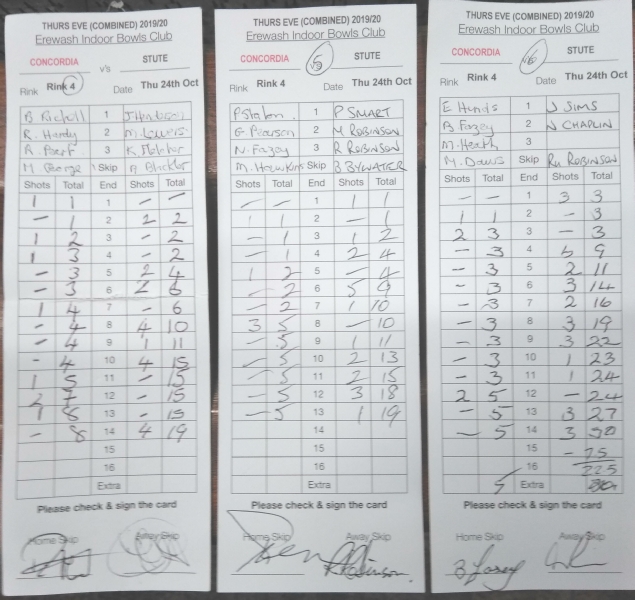 THURS EVE (COMBINED) 2019/20
Erewash Indoor Bowls Club
CONCORDIA v's STUTE
Rink Rink 4 Date Thu 24th Oct
B Rickell 1 J Henderson
R. Hardy 2 M. Lewis
A. Bert 3 K. Fletcher
M George Skip
Shots Total End Shots Total
1 1 1 - -
- 1 2 2 2
1 2 3 - 2
1 3 4 - 2
- 3 5 2 4
- 3 6 2 6
1 4 7 - 6
- 4 8 4 10
- 4 9 1 11
- 4 10 4 15
1 5 11 - 15
2 7 12 - 15
1 8 13 - 15
- 8 14 4 19
15
16
Extra
Please check & sign the card
Home Skip Away Skip
THURS EVE (COMBINED) 2019/20
Erewash Indoor Bowls Club
CONCORDIA v's STUTE
Rink Rink 4 Date Thu 24th Oct
P Staton. 1 P SMART
G Pearson 2 M ROBINSON
N. Fazey 3 R ROBINSON
M. Hawkins Skip B BYWATER
Shots Total End Shots Total
- - 1 1 1
1 1 2 - 1
- 1 3 1 2
- 1 4 2 4
1 2 5 - 4
- 2 6 5 9
- 2 7 1 10
3 5 8 - 10
- 5 9 1 11
- 5 10 2 13
- 5 11 2 15
- 5 12 3 18
- 5 13 1 19
14
15
16
Extra
Please check & sign the card
Home Skip Away Skip
THURS EVE (COMBINED) 2019/20
Erewash Indoor Bowls Club
CONCORDIA 6 STUTE
Rink Rink 4 Date Thu 24th Oct
E Hands 1 J SIMS
B. Fazey 2 N CHAPLIN
M. Heath 3
M. Davis Skip Ru ROBINSON
Shots Total End Shots Total
- - 1 3 3
1 1 2 - 3
2 3 3 - 3
- 3 4 6 9
- 3 5 2 11
- 3 6 3 14
- 3 7 2 16
- 3 8 3 19
- 3 9 3 22
- 3 10 1 23
- 3 11 1 24
2 5 12 - 24
- 5 13 3 27
- 5 14 3 30
15 - 75
16 225
5 Extra
Please check & sign the card
Home Skip Away Skip
B Fazey